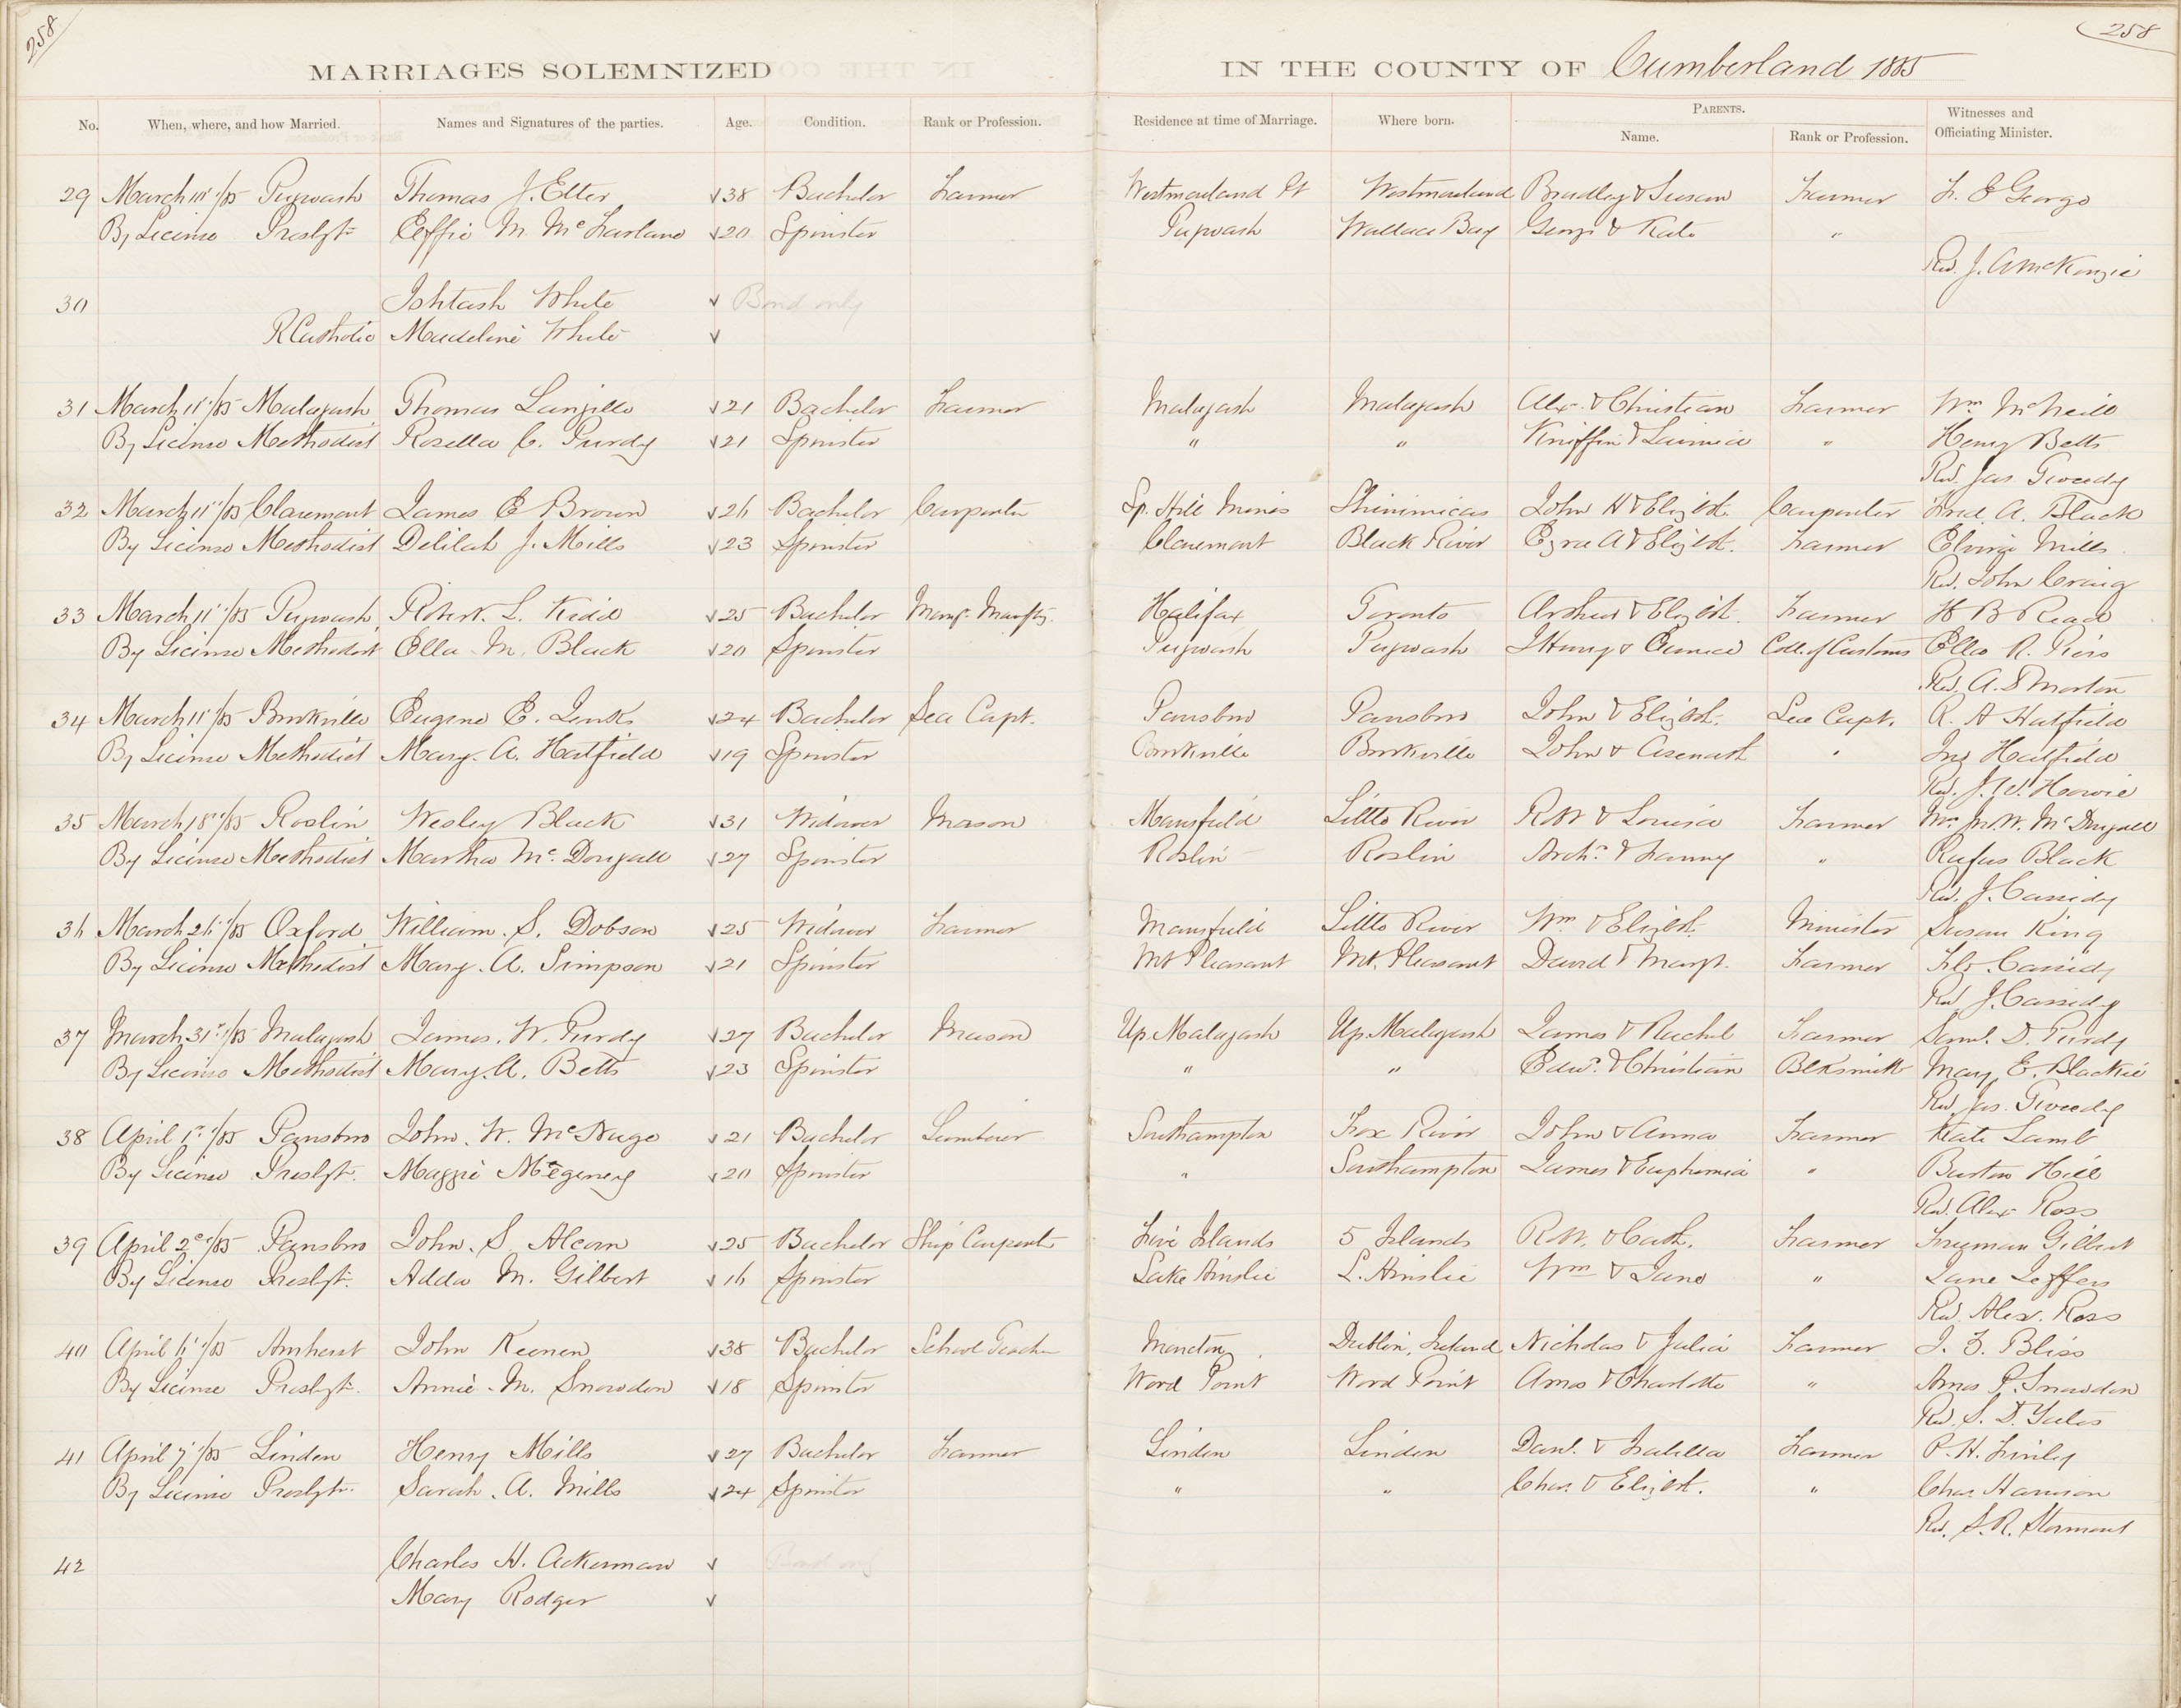 258
258
MARRIAGES SOLEMNIZED IN THE COUNTY OF Cumberland 1885
No. When, where, and how Married. Names and Signatures of the parties. Age. Condition. Rank or Profession. Residence at time of Marriage. Where born. PARENTS. Name. Rank or Profession. Witnesses and Officiating Minister.
29 March 10" /85 Pugwash Thomas J. Etter 38 Bachelor Farmer Westmorland Pt Westmorland Bradley & Susan Farmer F. E George
By License Presbyt. Effie M. McFarlane 20 Spinster Pugwash Wallace Bay George & Kate "
Rev. J. A McKenzie
30 White Bond only
R Catholic Madeline White
31 March 11" /85 Malagash Thomas Langille 21 Bachelor Farmer Malagash Malagash Alex. & Christian Farmer Wm McNeill
By License Methodist Rosella C. Purdy 21 Spinster " " Kniffin & Lavinia " Henry Betts
Rev. Jas Tweedy
32 March 11" /85 Claremont James E Brown 26 Bachelor Carpenter Sp. Hill Mines Shinimicas John H & Elizbth. Carpenter Fred. A. Black
By License Methodist Delilah J. Mills 23 Spinster Claremont Black River Ezra A & Elizbth. Farmer Mills
Rev. John Craig
33 March 11" /85 Pugwash Robert. L. Kidd 25 Bachelor Halifax Toronto Arthur & Elizbth. Farmer H B Read
By License Methodist Ella M. Black 20 Spinster Pugwash Pugwash J Henry & Eunice Coll. of Customs Ella R. Piers
Rev. A. S Morton
34 March 11" /85 Brookville Eugene E. Jenks 24 Bachelor Sea Capt. Parrsboro Parrsboro John & Elizbth. Sea Capt. R. A Hatfield
By License Methodist Mary. A. Hatfield 19 Spinster Brookville Brookville John & Asenath " Hatfield
Rev. J. W. Howie
35 March 18" /85 Roslin Wesley Black 31 Widower Mason Mansfield Little River R W & Louisa Farmer McDougall
By License Methodist Martha Mc. Dougall 27 Spinster Roslin Roslin Archd. & Fanny " Rufus Black
Rev. J. Cassidy
36 March 26" /85 Oxford William. S. Dobson 25 Widower Farmer Mansfield Little River Wm & Elizbth. Minister Susan King
By License Methodist Mary. A. Simpson 21 Spinster Mt Pleasant Mt. Pleasant David & Margt. Farmer Flo. Cassidy
Rev J. Cassidy
37 March 31st /85 Malagash James. W. Purdy 27 Bachelor Mason Up. Malagash Up. Malagash James & Rachel Farmer Saml. D. Purdy
By License Methodist Mary. A. Betts 23 Spinster " " Edwd. & Christian Blksmith Mary E. Blackie
Rev Jas. Tweedy
38 April 1st /85 Parrsboro John. W. McNuge 21 Bachelor Lumberer Southampton Fox River John & Anna Farmer Kate Lamb
By License Presbyt. Maggie 20 Spinster " Southampton James & Euphemia " Burton Hill
Rev. Alex Ross
39 April 2nd /85 Parrsboro John. S Alcorn 25 Bachelor Ship Carpenter Five Islands 5 Islands R. W. & Cath. Farmer Freeman Gilbert
By License Presbyt. Adda M. Gilbert 16 Spinster Lake Ainslie L. Ainslie Wm & Jane " Jane Jeffers
Rev. Alex. Ross
40 April 6" /85 Amherst John Keenen 38 Bachelor School Teacher Moncton Dublin, Ireland Nicholas & Julia Farmer J. F. Bliss
By License Presbyt. Annie. M. Snowdon 18 Spinster Wood Point Wood Point Amos & Charlotte " Amos P. Snowdon
Rev. S. D. Yates
41 April 7" /85 Linden Henry Mills 27 Bachelor Farmer Linden Linden Danl. & Isabella Farmer P. H. Finley
By License Presbyt. Sarah. A. Mills 24 Spinster " " Chas. & Elizbth. " Chas Harrison
Rev. S. R. Stormont
42 Charles H. Ackerman Bond only
Mary Rodger